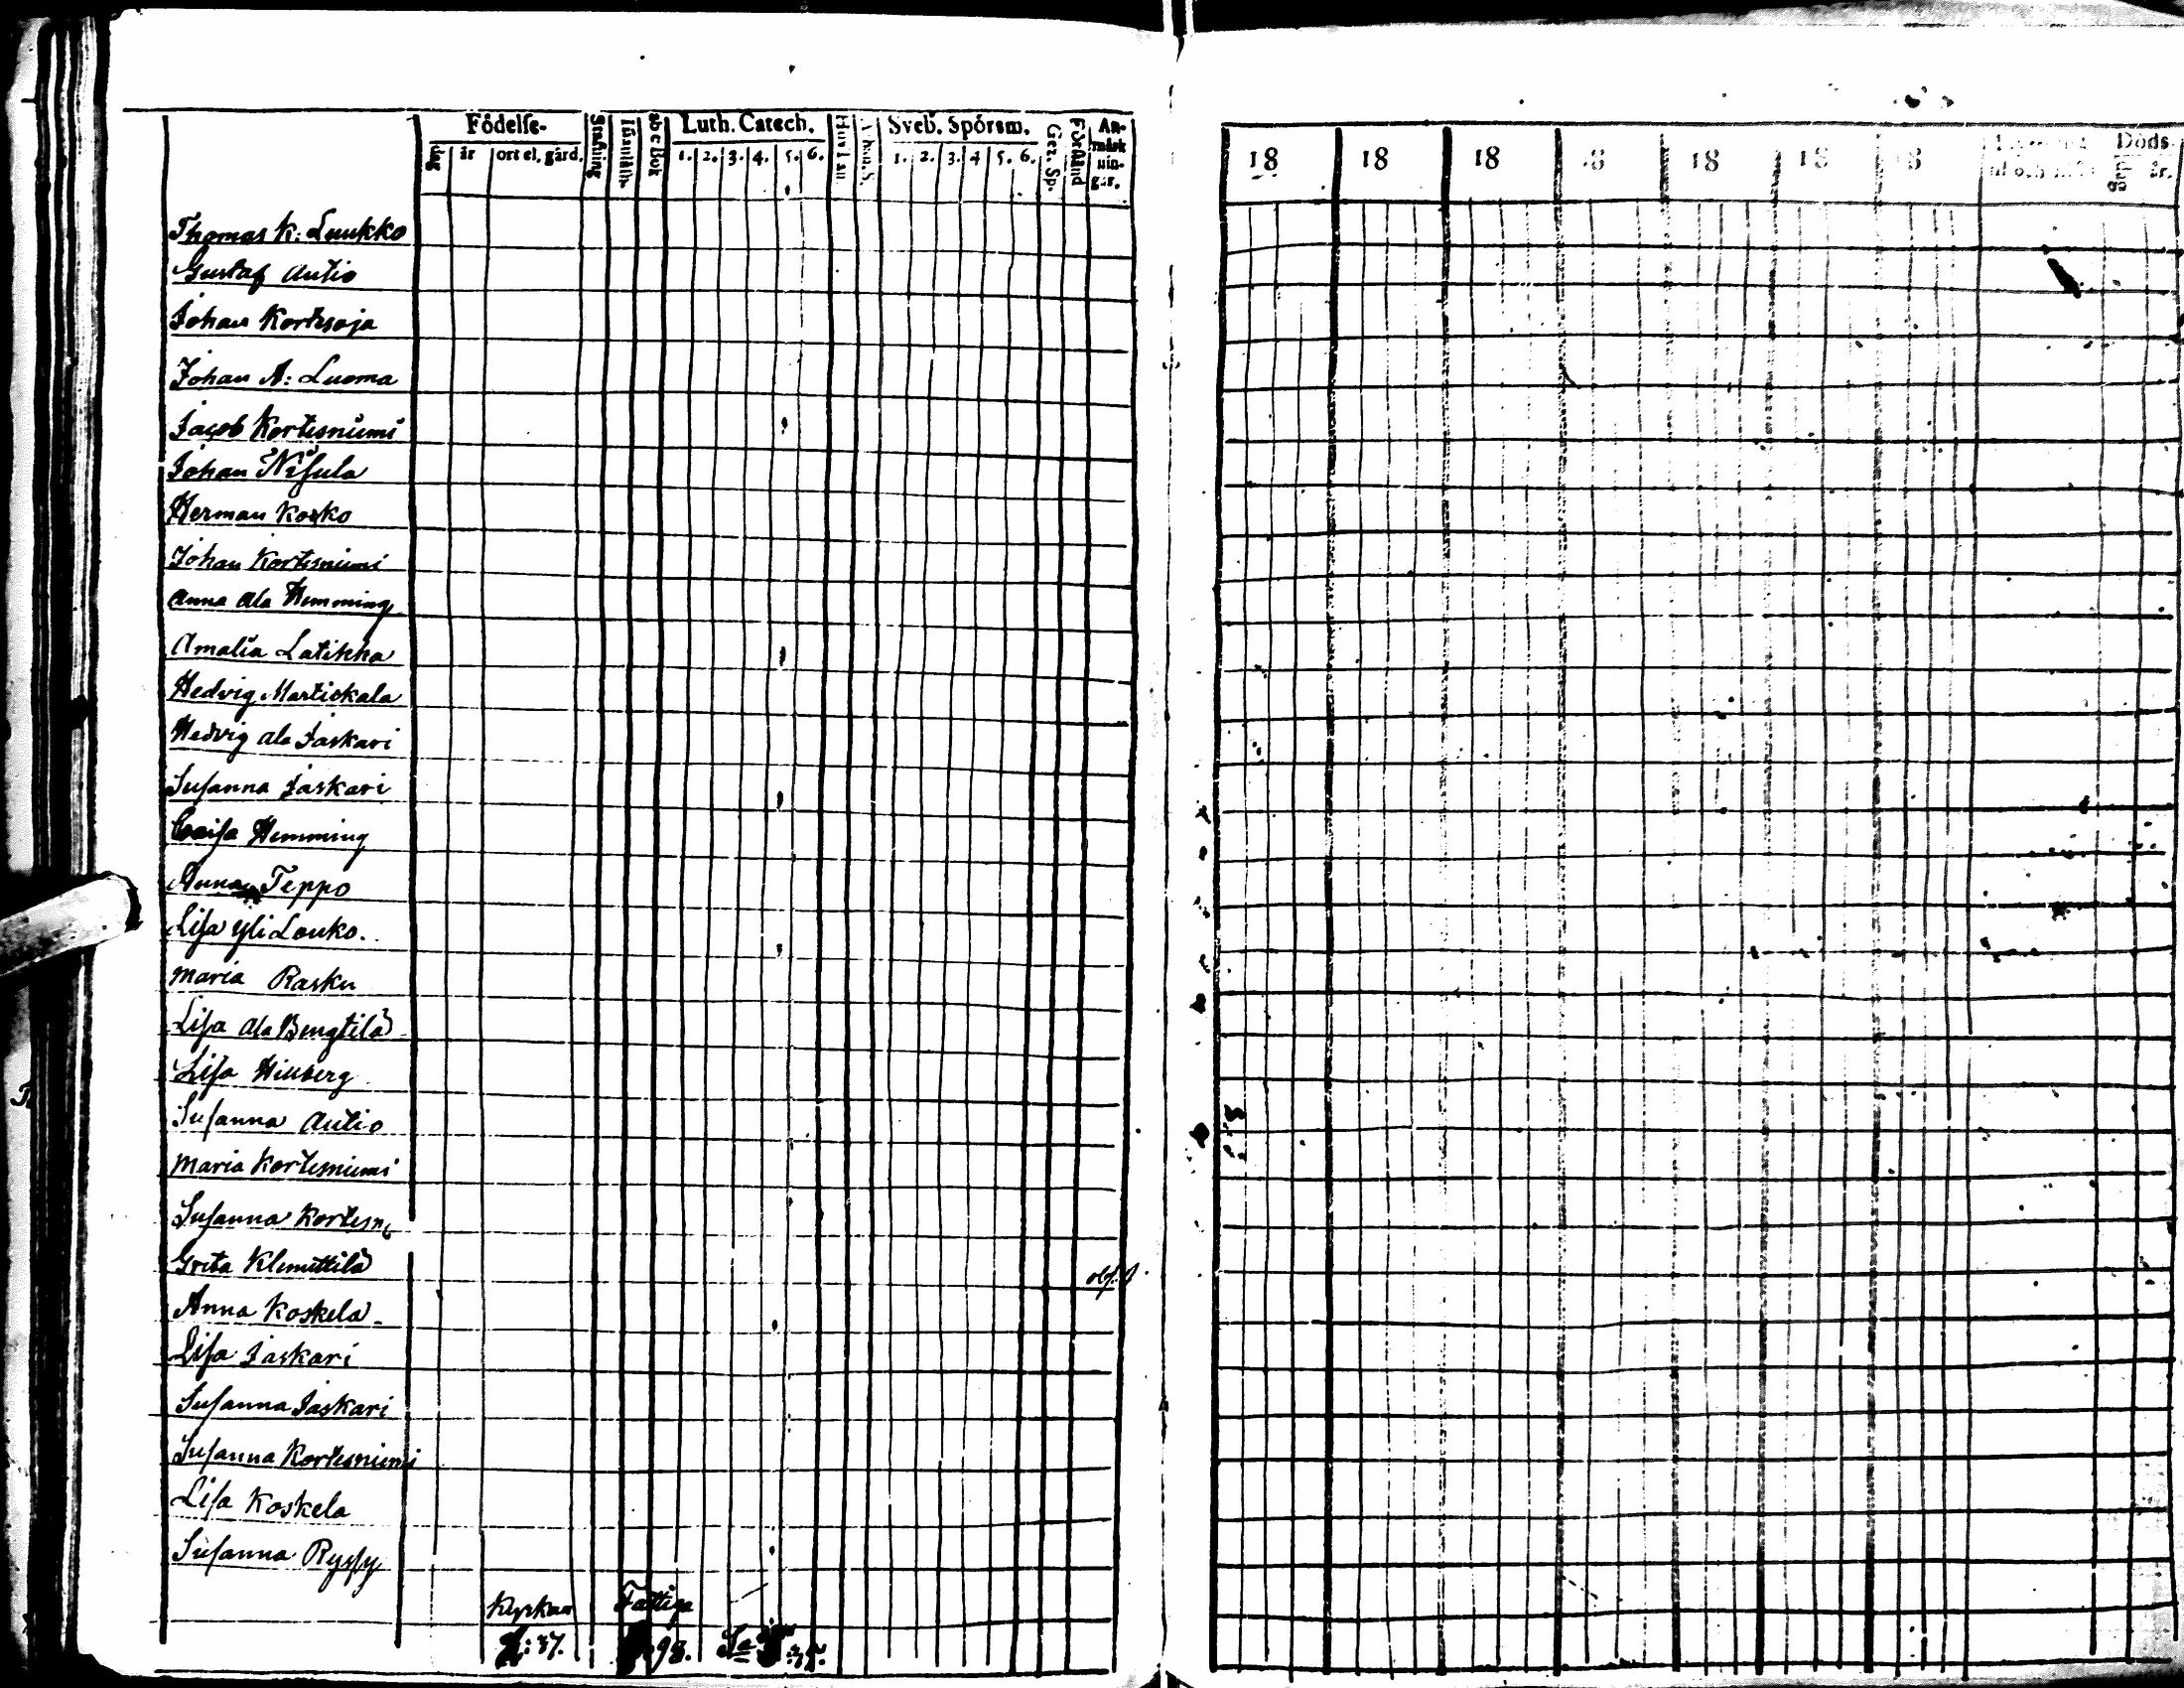 Födelse-
dag
år
ort el. gård.
Stafning
Innanläsn.
abc bok
Luth. Catech.
1. 2. 3. 4. 5. 6.
Sveb. Spörsm.
1. 2. 3. 4 5. 6.
Gez. Sp.
Förstånd
An-
märk
nin-
gar.
18 18 18 18 18 18 18
Döds-
dag år.
Thomas K: Luukko
Gustaf Autio
Johan Kortesoja
Johan A: Luoma
Jacob Kortesniemi
Johan Nisula
Herman Kosko
Johan Kortesniemi
Anna Ala Hemming
Amalia Latikka
Hedvig Martickala
Hedvig Ala Jaskari
Susanna Jaskari
Caisa Hemming
Anna Teppo
Lisa Yli Louko.
Maria Rasku
Lisa Ala Bengtilä
Lisa Hillberg
Susanna Autio
Maria Kortesniemi
Susanna Kortesn
Greta Klemettilä
Anna Koskela
Lisa Jaskari
Susanna Jaskari
Susanna Kortesniemi
Lisa Koskela
Susanna Ryssy
Kyrkan Fattiga
: 37. 98.